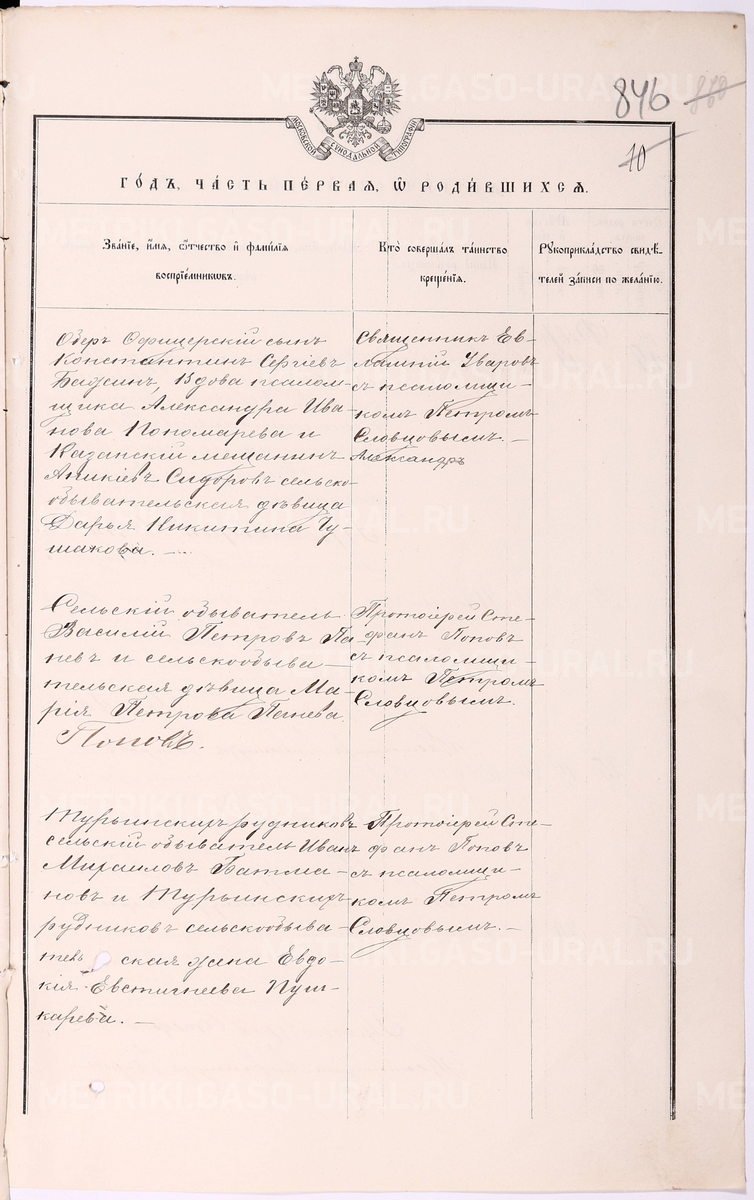 846 860
10
МОСКОВСКОЙ СѴНОДАЛЬНОЙ ТИПОГРАФІИ
ГО́ДЪ, ЧА́СТЬ ПЕ́РВАЯ, Ѿ РОДИ́ВШИХСЯ.
Зва́нїе, и́мя, ѻ҆́тчество и҆ фами́лїя
воспрїе́мникѡвъ.
Кто̀ соверша́лъ та́инство
креще́нїя.
Рꙋкоприкла́дство свидѣ́-
телей за́писи по жела́нїю.
Оберъ Офицерскій сынъ
Константинъ Сергіевъ
Бажинъ, Вдова псалом-
щика Александра Ива-
нова Пономарева и
Казанскій мещанинъ
Аникіевъ Сидоровъ сельско-
обывательская дѣвица
Дарья Никитина Чу-
шакова. —
Священникъ Ев-
лампій Уваровъ
съ псаломщи-
комъ Петромъ
Словцовымъ. —
Александръ
Сельскій обыватель
Василій Петровъ Па-
невъ и сельскообыва-
тельская дѣвица Ма-
рія Петрова Панева.
Поповъ.
Протоіерей Сте-
фанъ Поповъ
съ псаломщи-
комъ Петромъ
Словцовымъ.
Турьинскихъ рудниковъ
сельскій обыватель Иванъ
Михаиловъ Батма-
новъ и Турьинскихъ
рудниковъ сельскообыва-
тель ская жена Евдо-
кія Евстигнеева Пуш-
карева. —
Протоіерей Сте-
фанъ Поповъ
съ псаломщи-
комъ Петромъ
Словцовымъ. —
METRIKI.GASO-URAL.RU